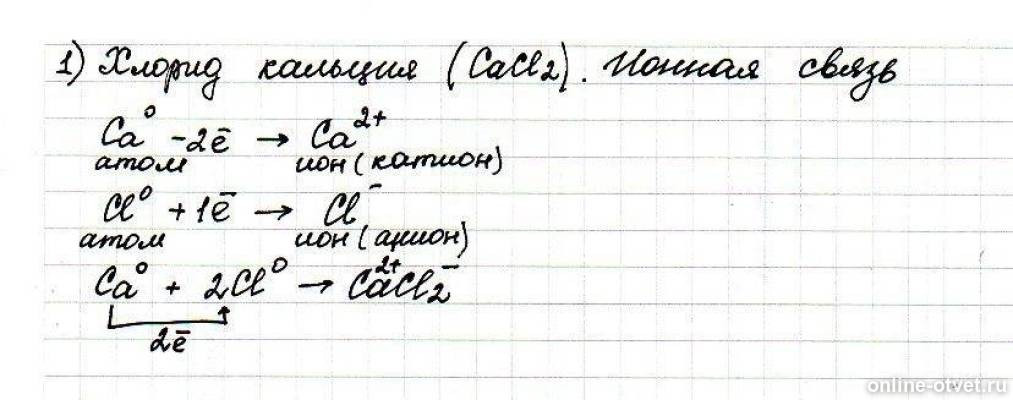 1) Хлорид кальция (CaCl₂). Ионная связь
Ca⁰ -2ē → Ca²⁺
атом ион (катион)
Cl⁰ + 1ē → Cl⁻
атом ион (анион)
Ca⁰ + 2Cl⁰ → Ca²⁺Cl₂⁻
2ē
online-otvet.ru